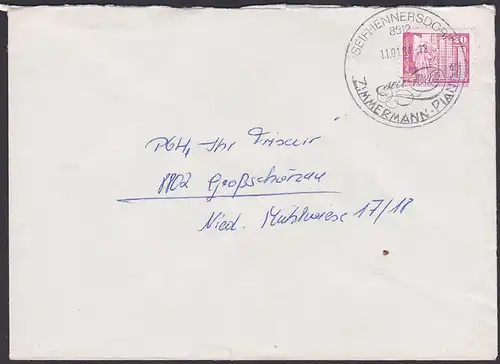 SEIFHENNERSDORF
8812
11.01.
20
seit
ZIMMERMANN-PIANOS
PGH „Ihr Friseur
8802 Großschönau
Nied. Mühlwiese 17/18